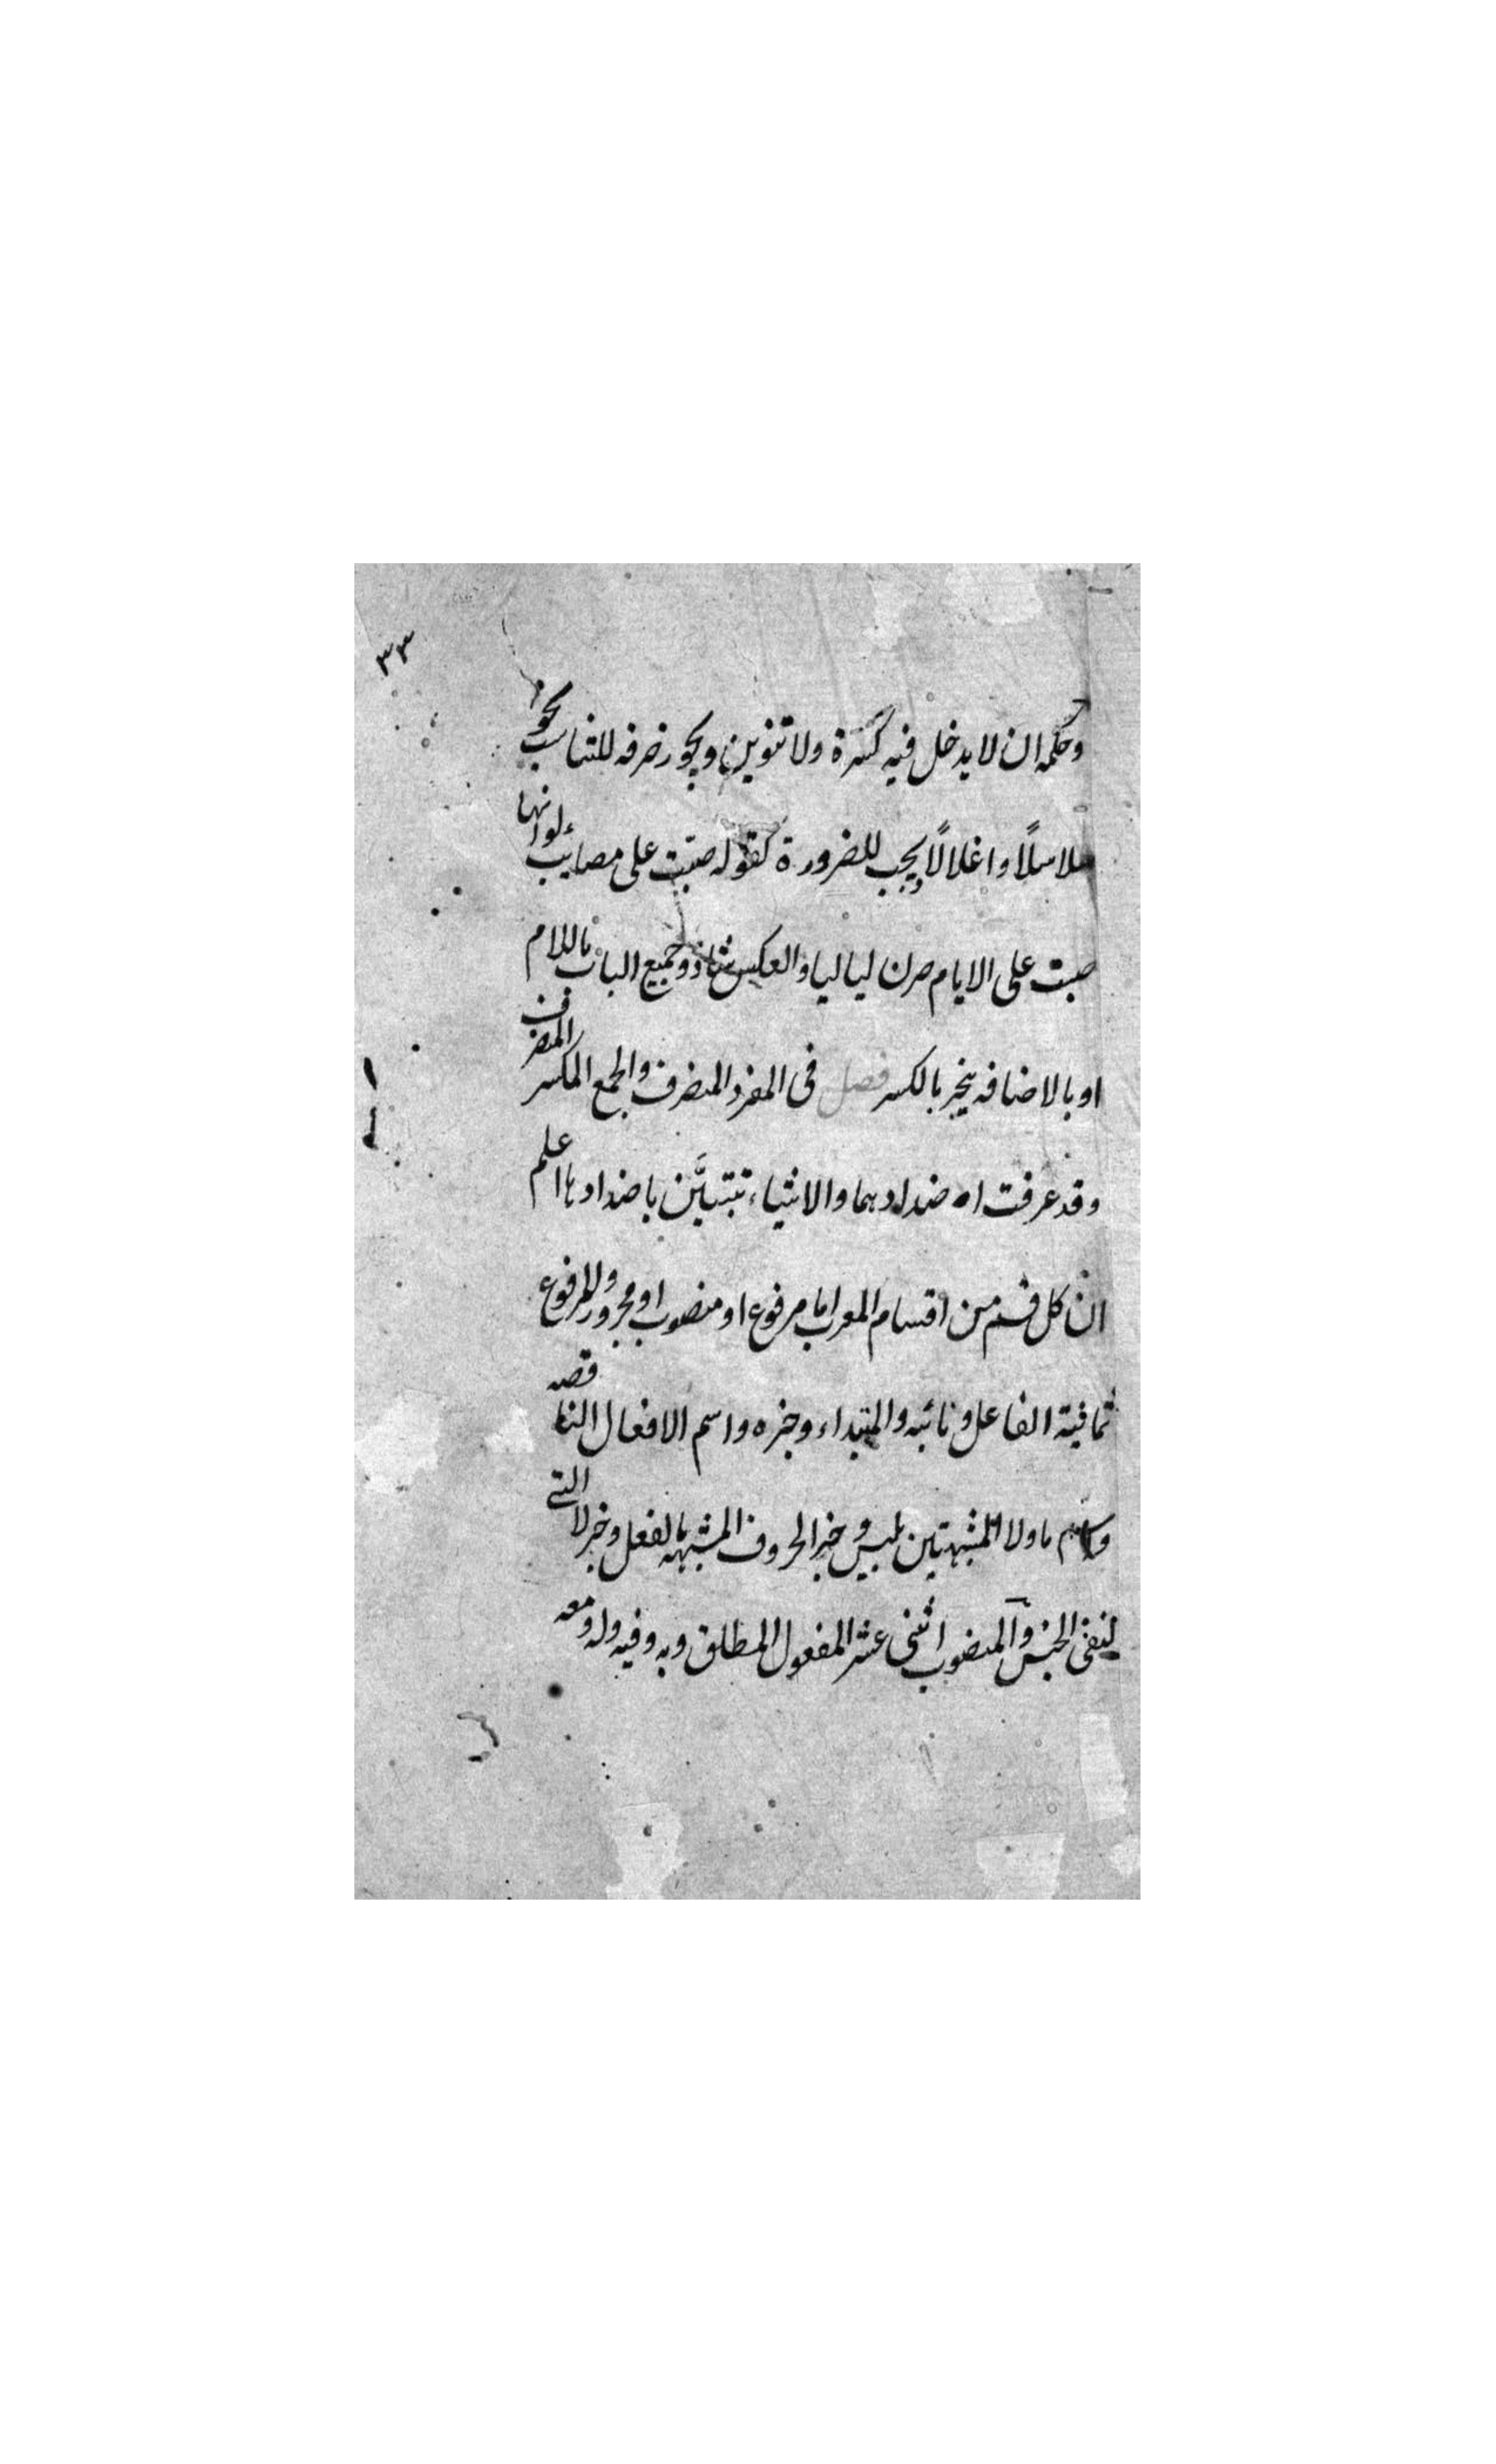 ٣٣
وحكمه ان لا يدخل فيه كسرة ولا تنوين ويجوز صرفه للتناسب نحو
سلاسلًا واغلالًا ويجب للضرورة كقوله صبّت على مصائب لو انها
صبت على الايام صرن لياليا والعكس شاذ وجميع الباب باللام
او بالاضافه ينجر بالكسر فصل فى المفرد المنصرف والجمع المكسر المنصرف
وقد عرفت اضدادهما والاشياء تتبيّن باضدادها اعلم
ان كل قسم من اقسام المعرب اما مرفوع او منصوب او مجرور والمرفوع
ثمانية الفاعل ونائبه والمبتداء وخبره واسم الافعال الناقصه
واسم ما ولا المشبهتين بليس وخبر الحروف المشبهه بالفعل وخبر لا التى
لنفى الجنس والمنصوب اثنى عشر المفعول المطلق وبه وفيه وله ومعه